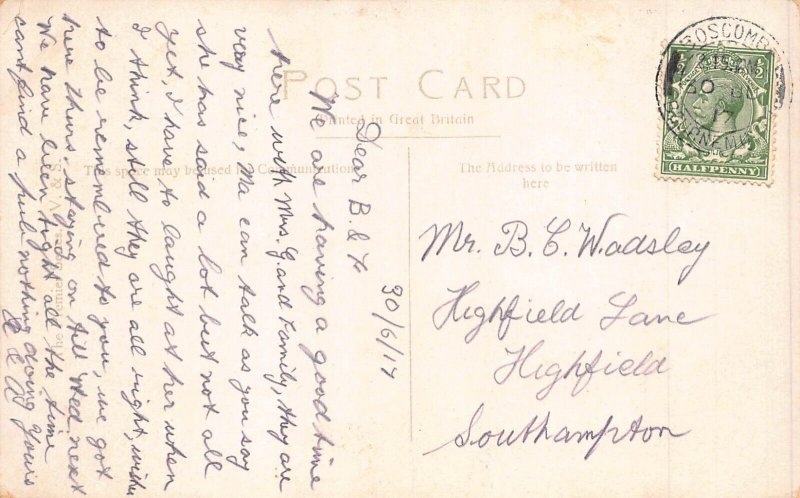 POST CARD
Printed in Great Britain
This space may be used for Communication
The Address to be written
here
BOSCOMBE
BOURNEMOUTH
30
17
HALFPENNY
30/6/17
Dear B. & F.
We are having a good time
here with Mrs. G. and Family, they are
very nice, Ma can talk as you say
she has said a lot but not all
yet, I have to laught at her when
I think, still they are all right, wishes
to be remembered to you, we got
here thurs, staying on till Wed, next
We have been tight all the time
cant find a pub nothing doing Yours
E & A
Mr. B. C. Wadsley
Highfield Lane
Highfield
Southampton